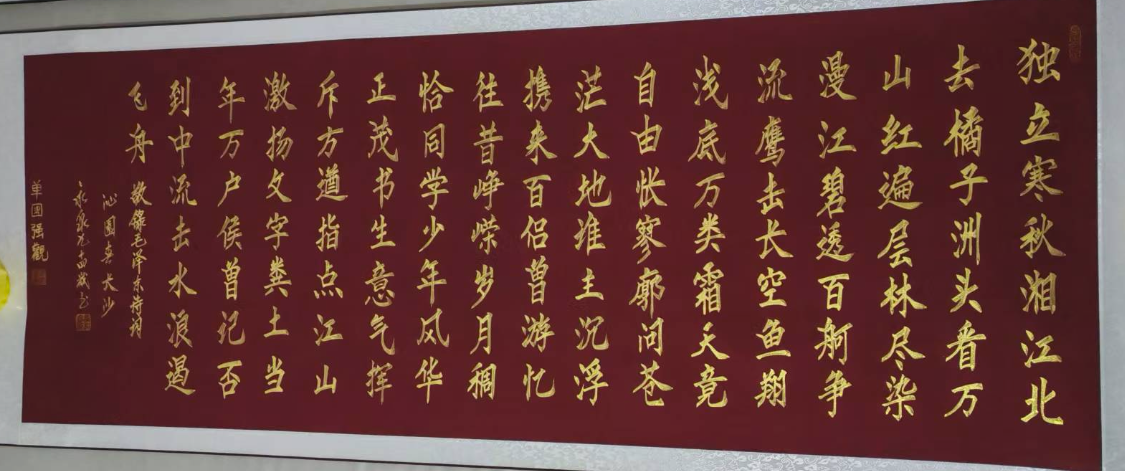 独立寒秋湘江北
去橘子洲头看万
山红遍层林尽染
漫江碧透百舸争
流鹰击长空鱼翔
浅底万类霜天竟
自由怅寥廓问苍
茫大地谁主沉浮
携来百侣曾游忆
往昔峥嵘岁月稠
恰同学少年风华
正茂书生意气挥
斥方遒指点江山
激扬文字粪土当
年万户侯曾记否
到中流击水浪遏
飞舟 敬 毛泽东诗词
沁园春长沙
单国强觀